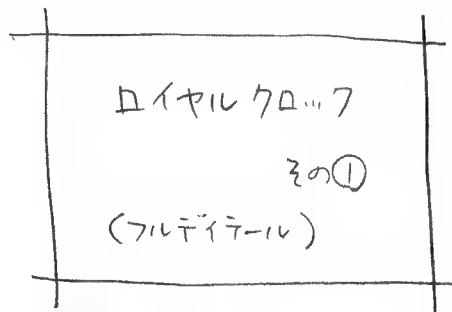 ロイヤルクロック
その①
(フルディテール)